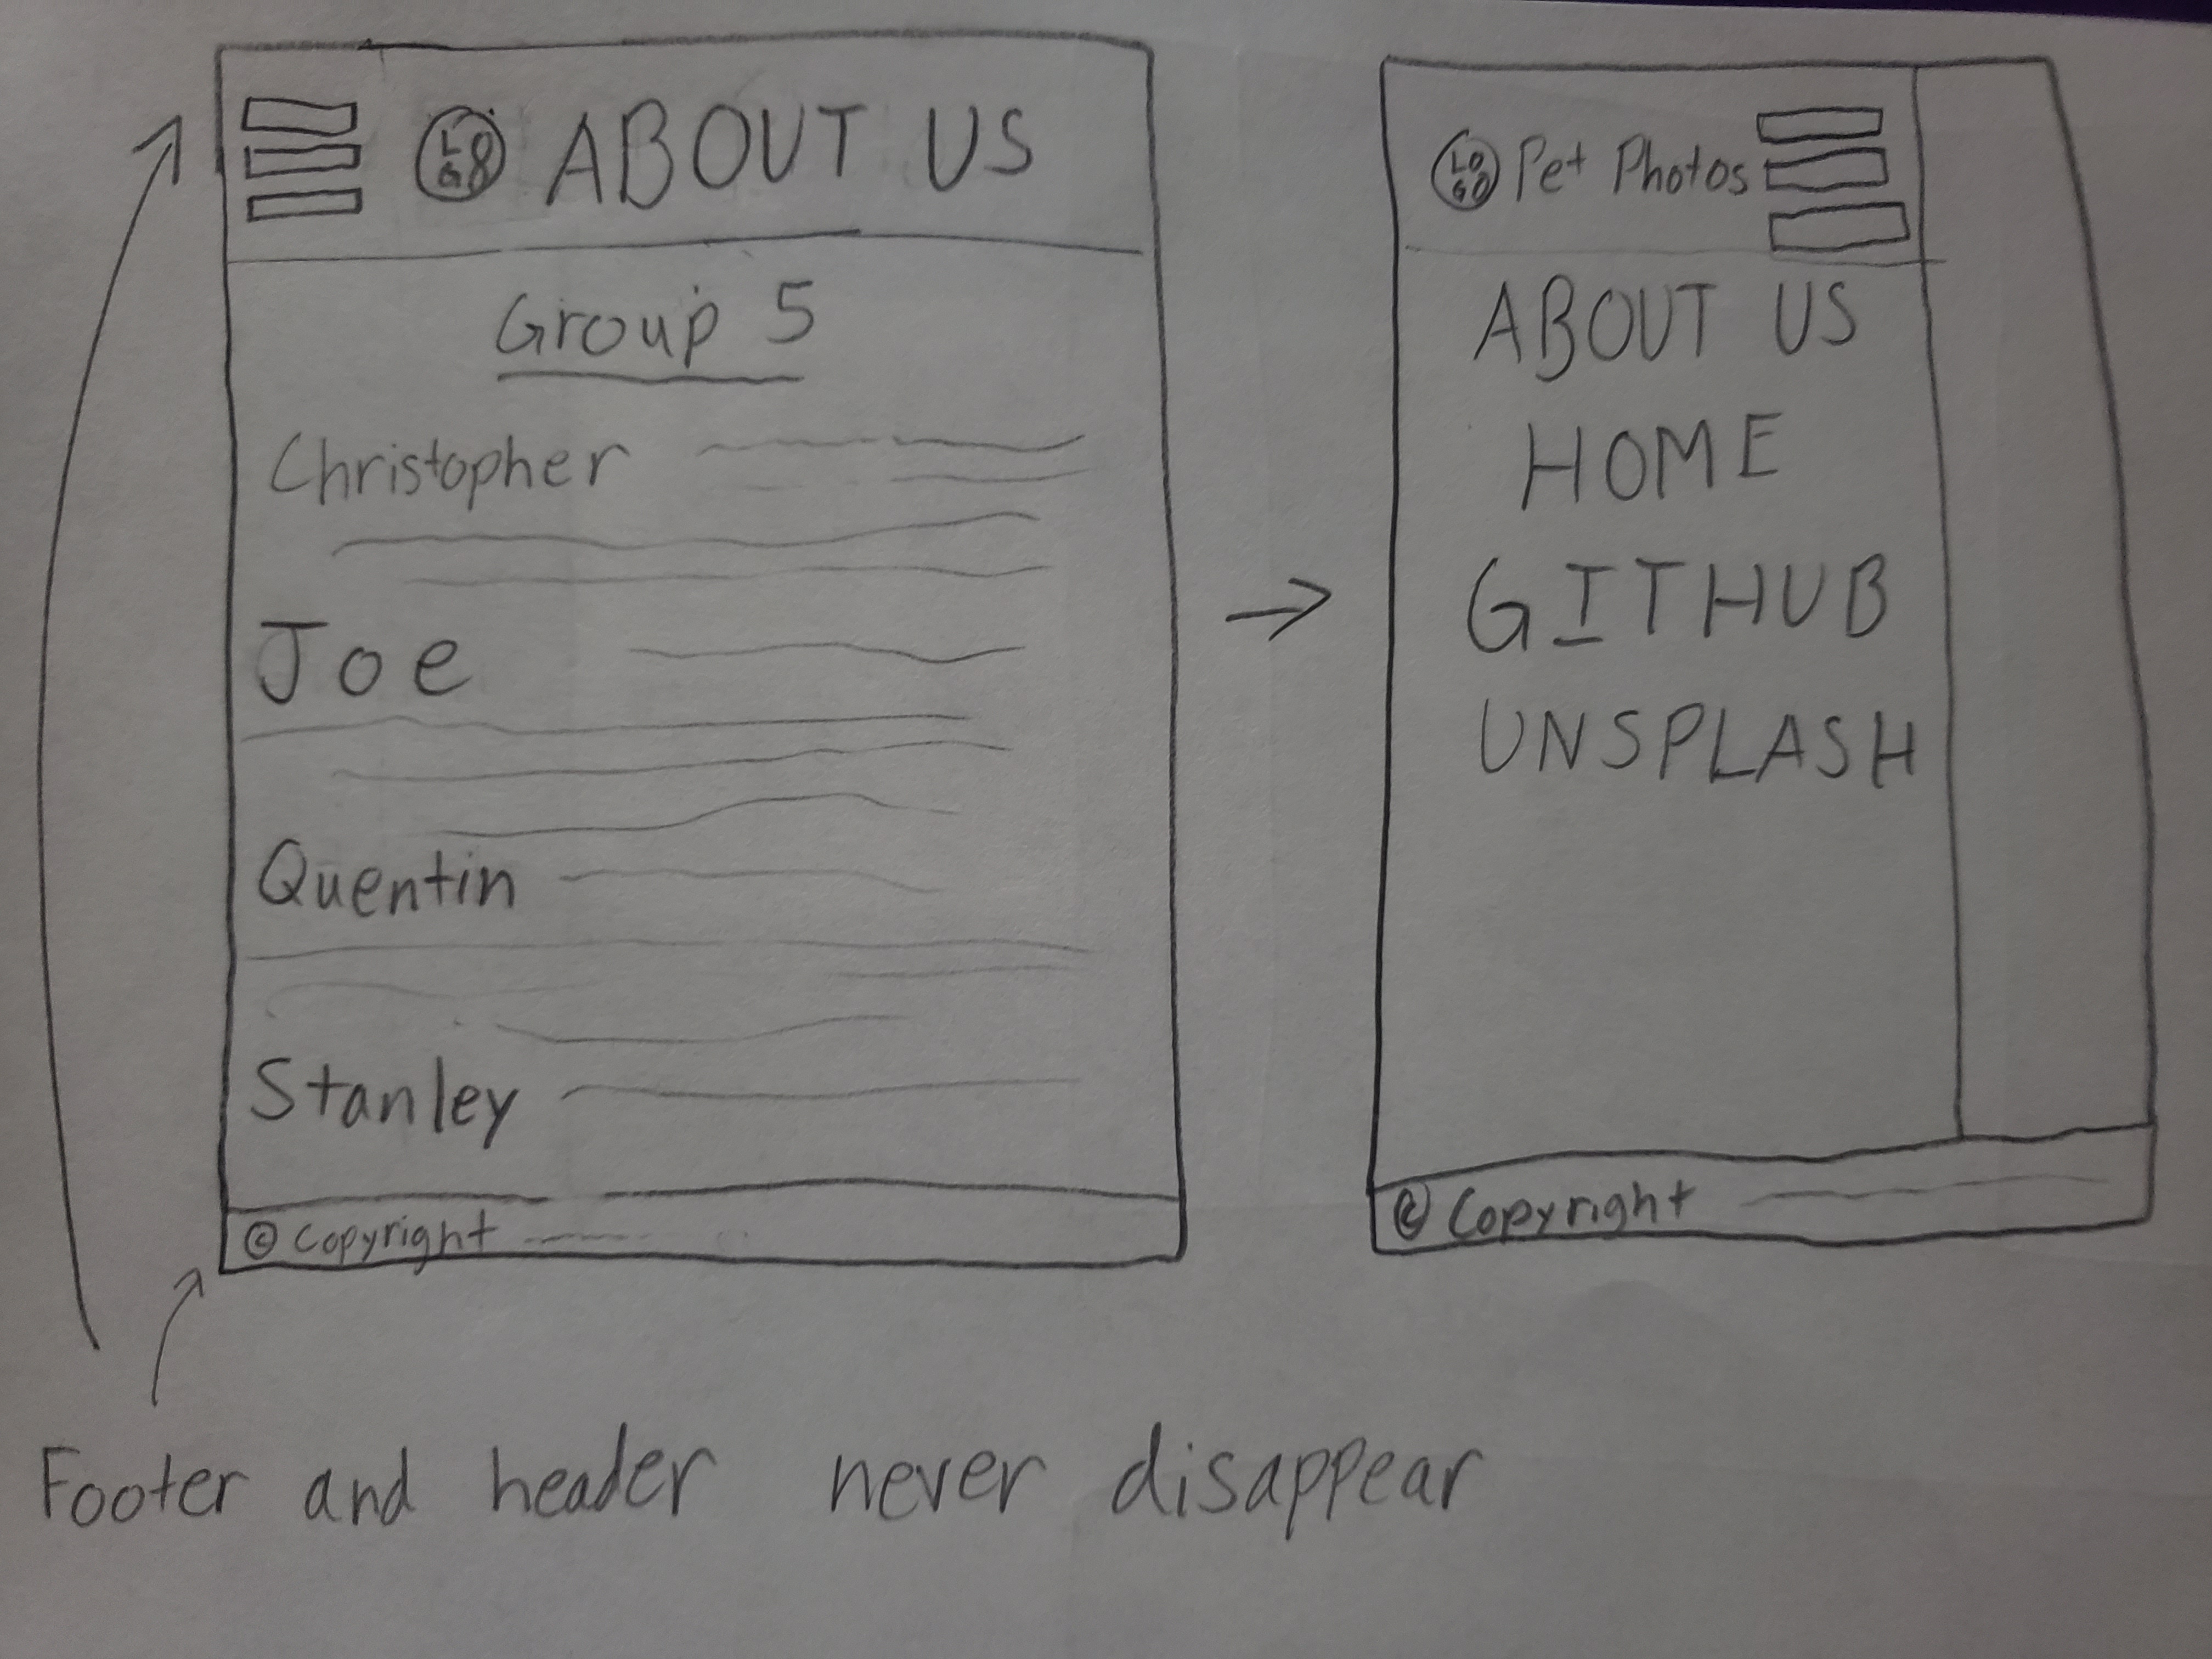 LOGO ABOUT US
Group 5
Christopher
Joe
Quentin
Stanley
© Copyright
LOGO Pet Photos
ABOUT US
HOME
GITHUB
UNSPLASH
© Copyright
Footer and header never disappear